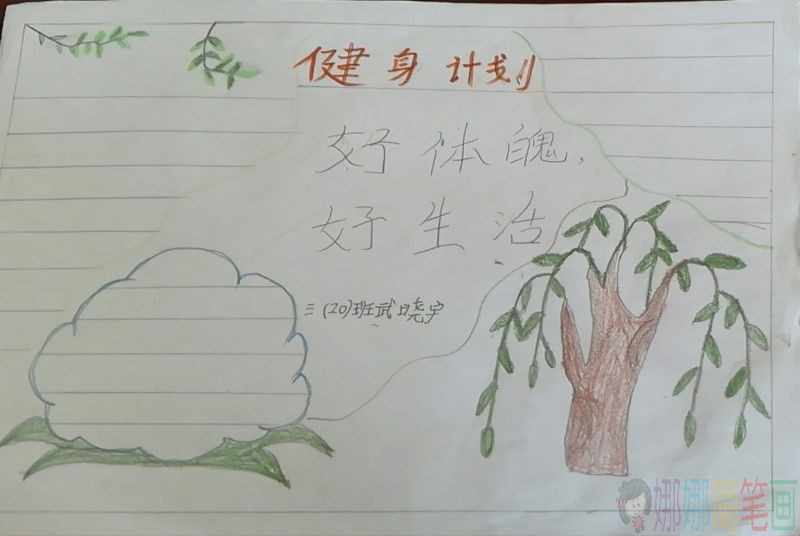 健身计划
好体魄,
好生活
三(20)班武晓宇
娜娜简笔画